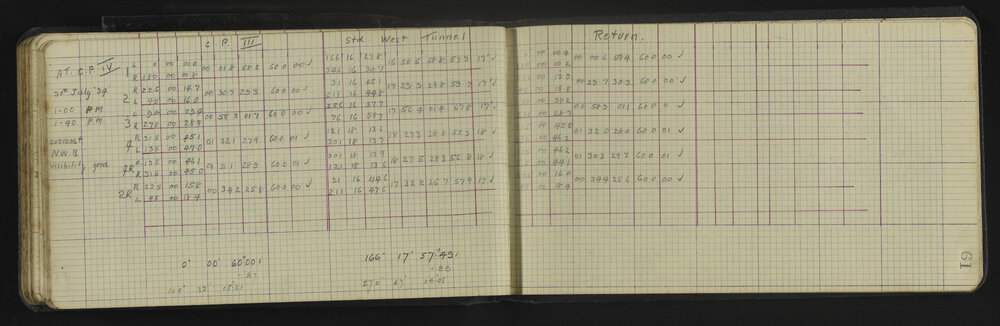 C P. III Std West Tunnel Return.
AT. C.P. IV
30th July '24
1-00 P.M
1-40 P.M.
overcast
N.W.B.
visibility good
1 L 0 00 01.0 00 01.8 58.2 60.0 00 ✓ 166 16 27.8 16 58.5 58.8 57.3 17 ✓ 00 00.4 00 00.6 59.4 60.0 00 ✓
R 180 00 00.8 346 16 30.7 00 00.2
2 R 225 00 14.7 00 30.7 29.3 60.0 00 ✓ 31 16 45.1 17 29.9 29.8 59.7 17 ✓ 00 13.9 00 29.7 30.3 60.0 00 ✓
L 45 00 16.0 211 16 44.8 00 15.8
3 L 90 00 29.4 00 58.3 01.7 60.0 00 ✓ 256 16 57.7 17 56.4 01.4 57.8 17 ✓ 00 30.2 00 58.9 01.1 60.0 00 ✓
R 270 00 28.9 76 16 58.7 00 28.7
4 R 315 00 45.1 01 32.1 27.9 60.0 01 ✓ 121 18 13.6 18 27.3 28.0 55.3 18 ✓ 00 45.8 01 32.0 28.0 60.0 01 ✓
L 135 00 47.0 301 18 13.7 00 46.2
4R L 135 00 46.1 01 31.1 28.9 60.0 01 ✓ 301 18 13.9 18 27.5 29.3 56.8 18 ✓ 00 46.2 01 30.3 29.7 60.0 01 ✓
R 315 00 45.0 121 18 13.6 00 44.1
2R R 225 00 15.8 00 34.2 25.8 60.0 00 ✓ 31 16 44.6 17 32.2 25.7 57.9 17 ✓ 00 16.0 00 34.4 25.6 60.0 00 ✓
L 45 00 18.4 211 16 47.6 00 18.4
0° 00' 60".001 166° 17' 57".491
- .87 - .88
104° 32' 270° 47'
61